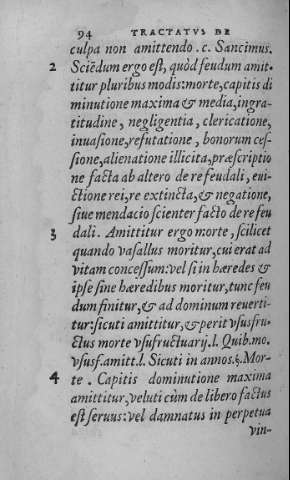 94 TRACTATVS DE
culpa non amittendo .c. Sancimus.
2 Sciēdum ergo est, quòd feudum amit-
titur pluribus modis: morte, capitis di
minutione maxima & media, ingra-
titudine, negligentia, clericatione,
inuasione, refutatione, bonorum ces-
sione, alienatione illicita, præscriptio
ne facta ab altero de re feudali, eui-
ctione rei, re extincta, & negatione,
siue mendacio scienter facto de re feu
3 dali. Amittitur ergo morte, scilicet
quando vasallus moritur, cui erat ad
vitam concessum: vel si in hæredes &
ipse sine hæredibus moritur, tunc feu
dum finitur, & ad dominum reuerti-
tur: sicuti amittitur, & perit vsusfru-
ctus morte vsufructuarij.l. Quib. mo.
vsusf. amitt. l. Sicuti in annos. §. Mor-
4 te. Capitis dominutione maxima
amittitur, veluti cùm de libero factus
est seruus: vel damnatus in perpetua
vin-